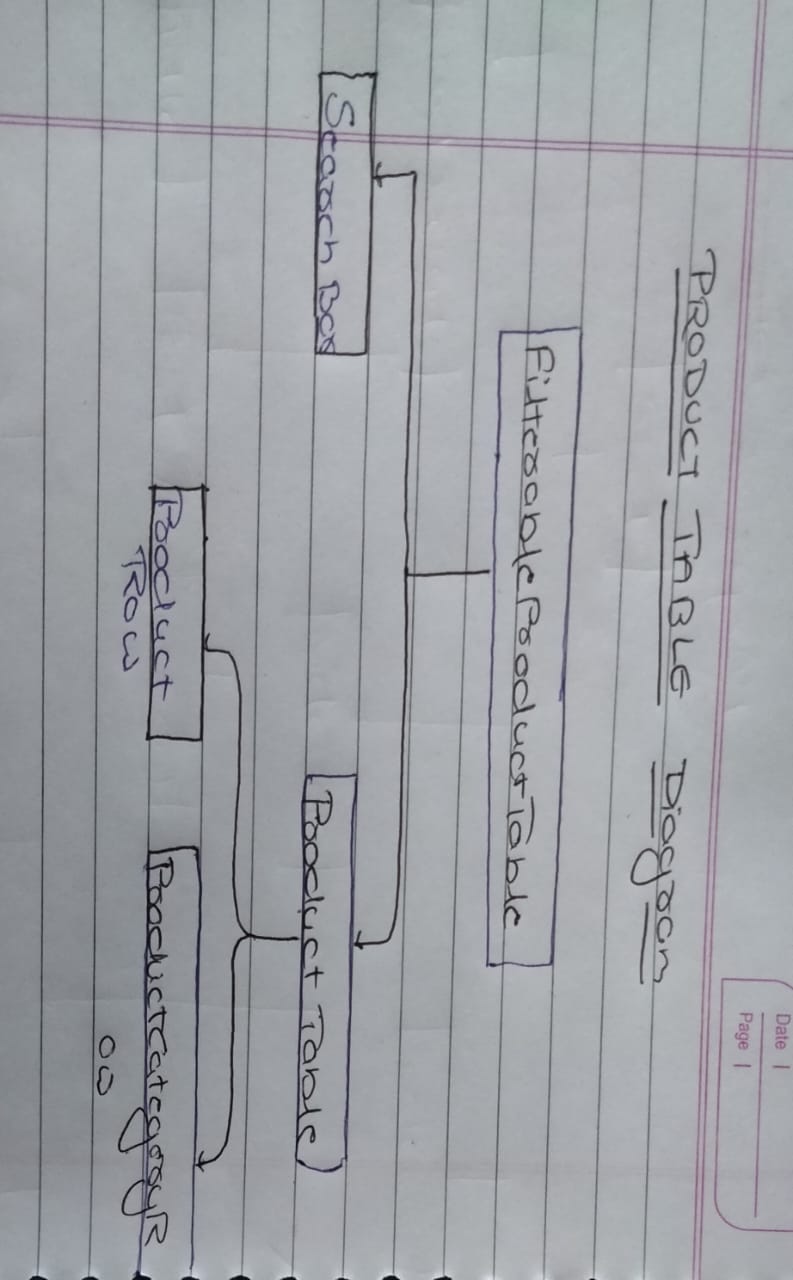 Date
Page
PRODUCT TABLE Diagram
FilterableProductTable
Search Box
Product Table
Product
Row
ProductCategoryR
ow